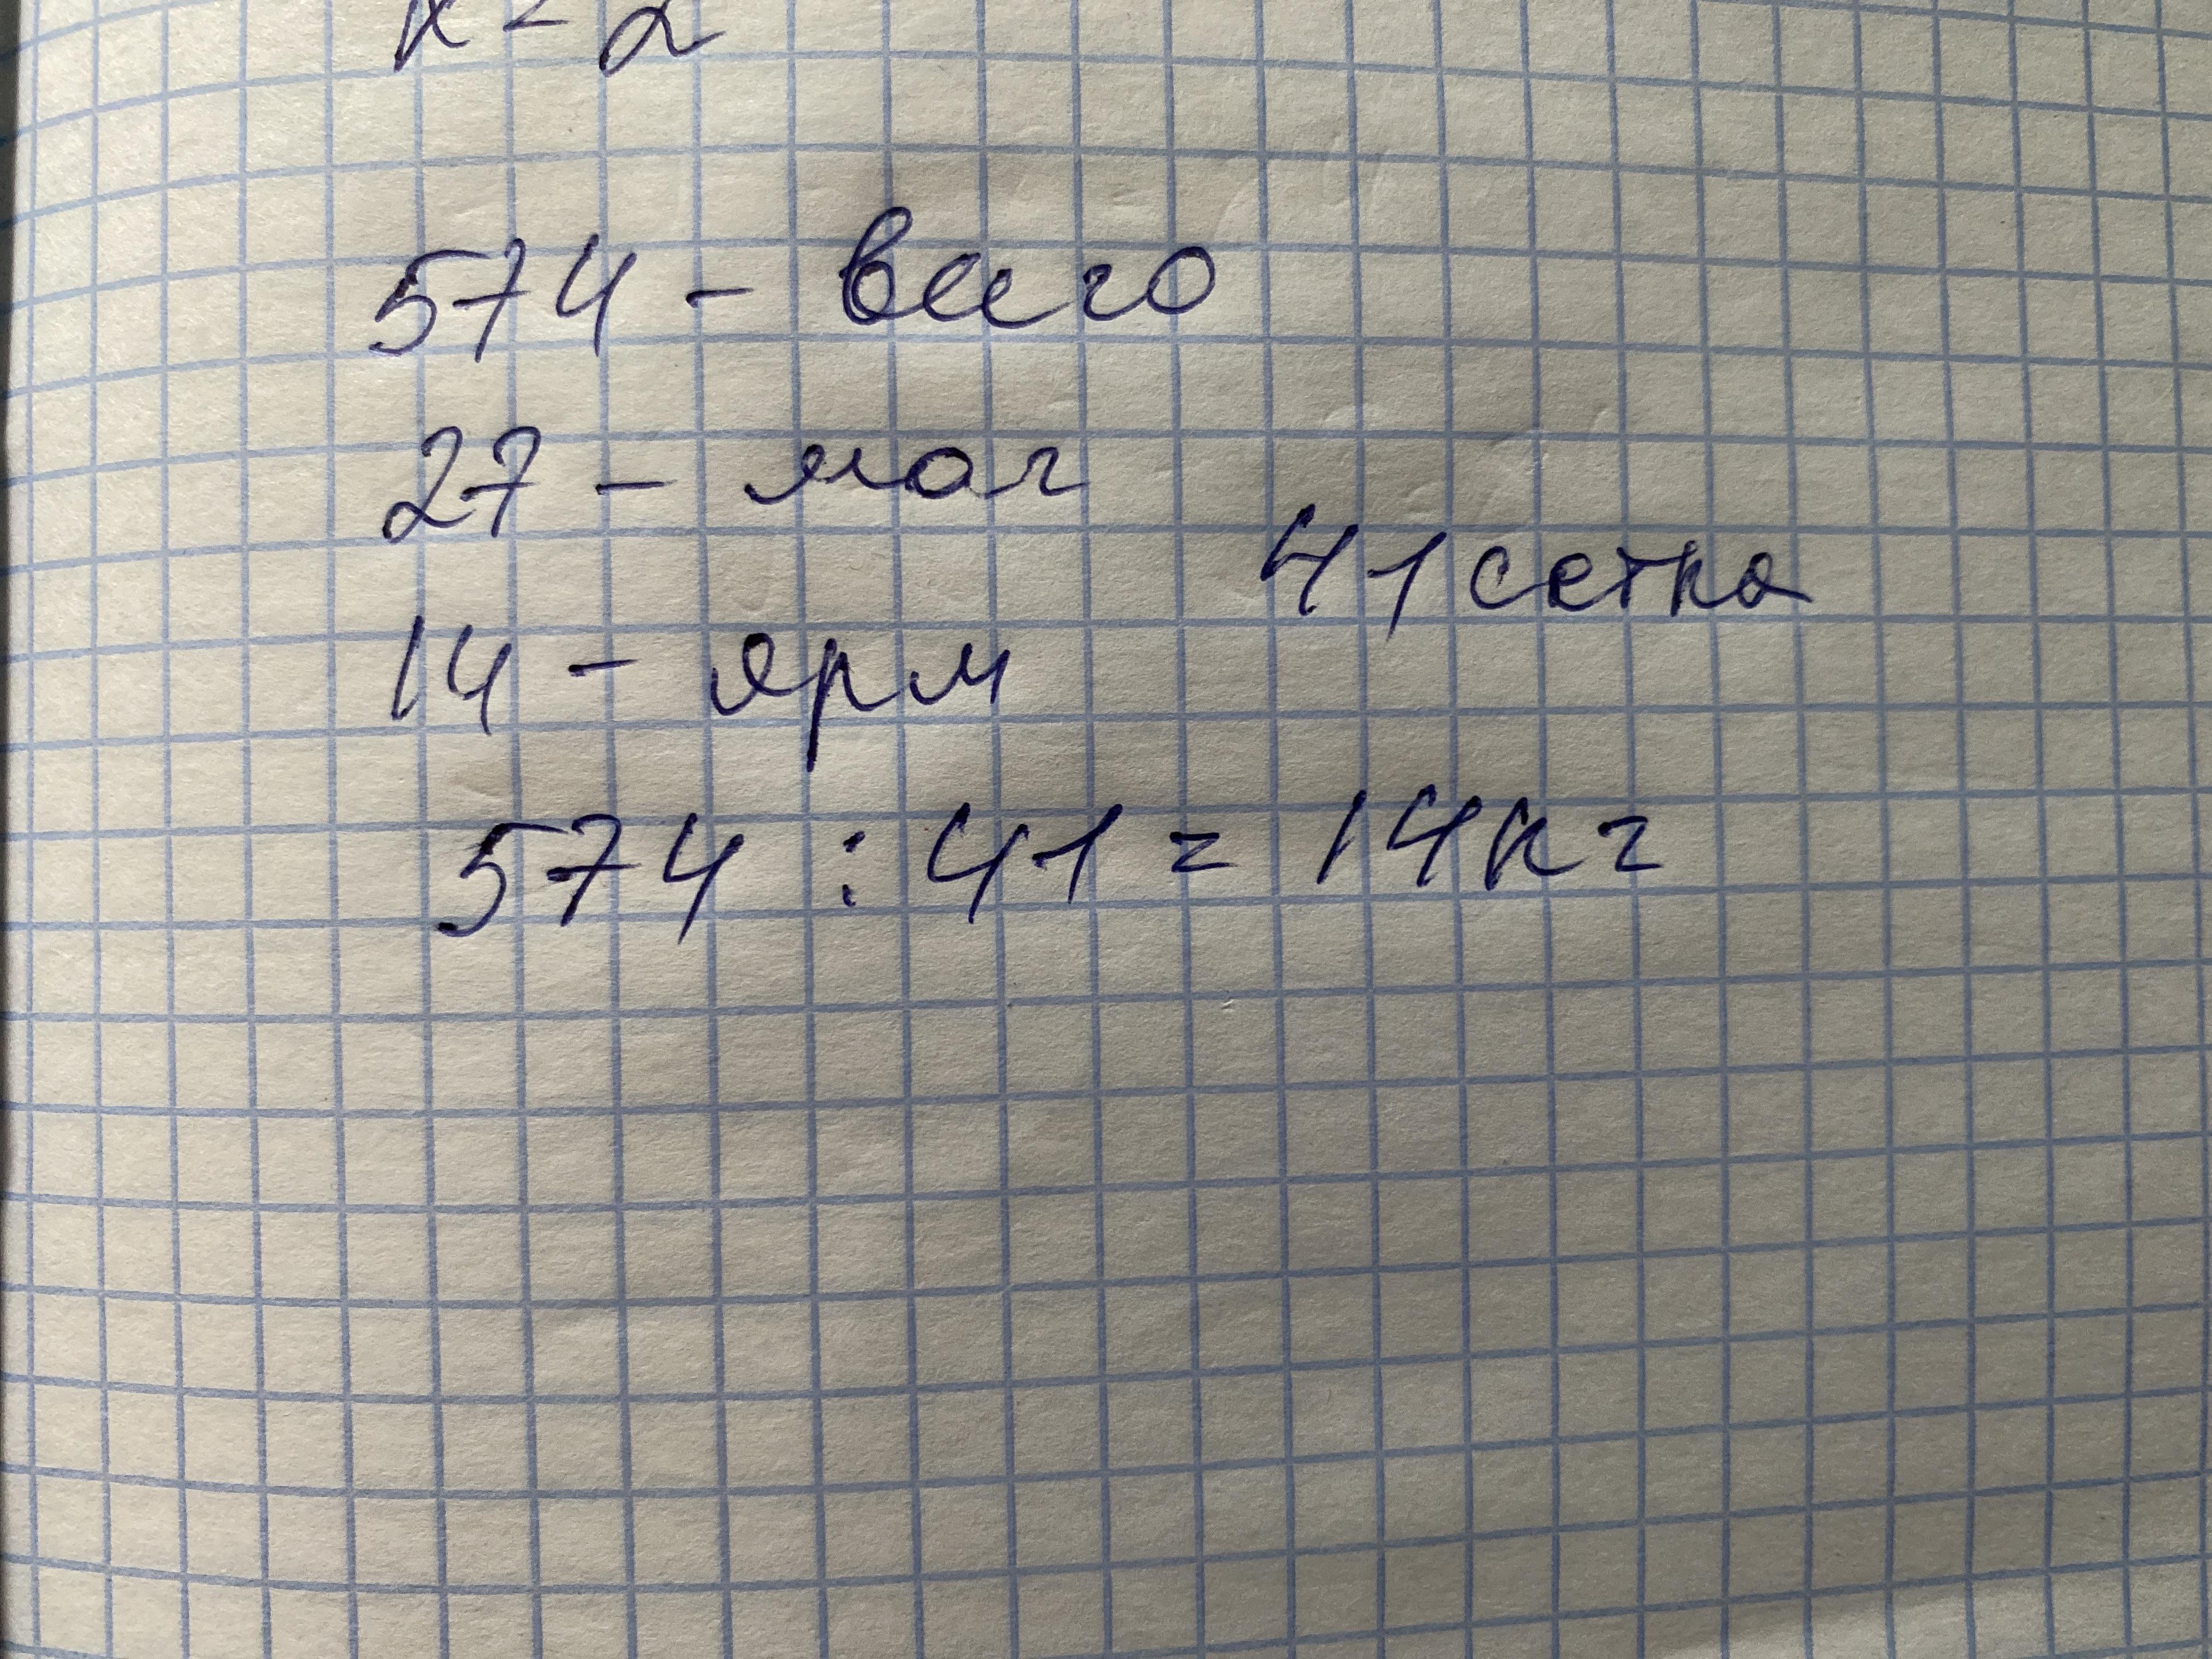 х = 2
574 - всего
27 - маг
41 сетка
14 - ярм
574 : 41 = 14 кг